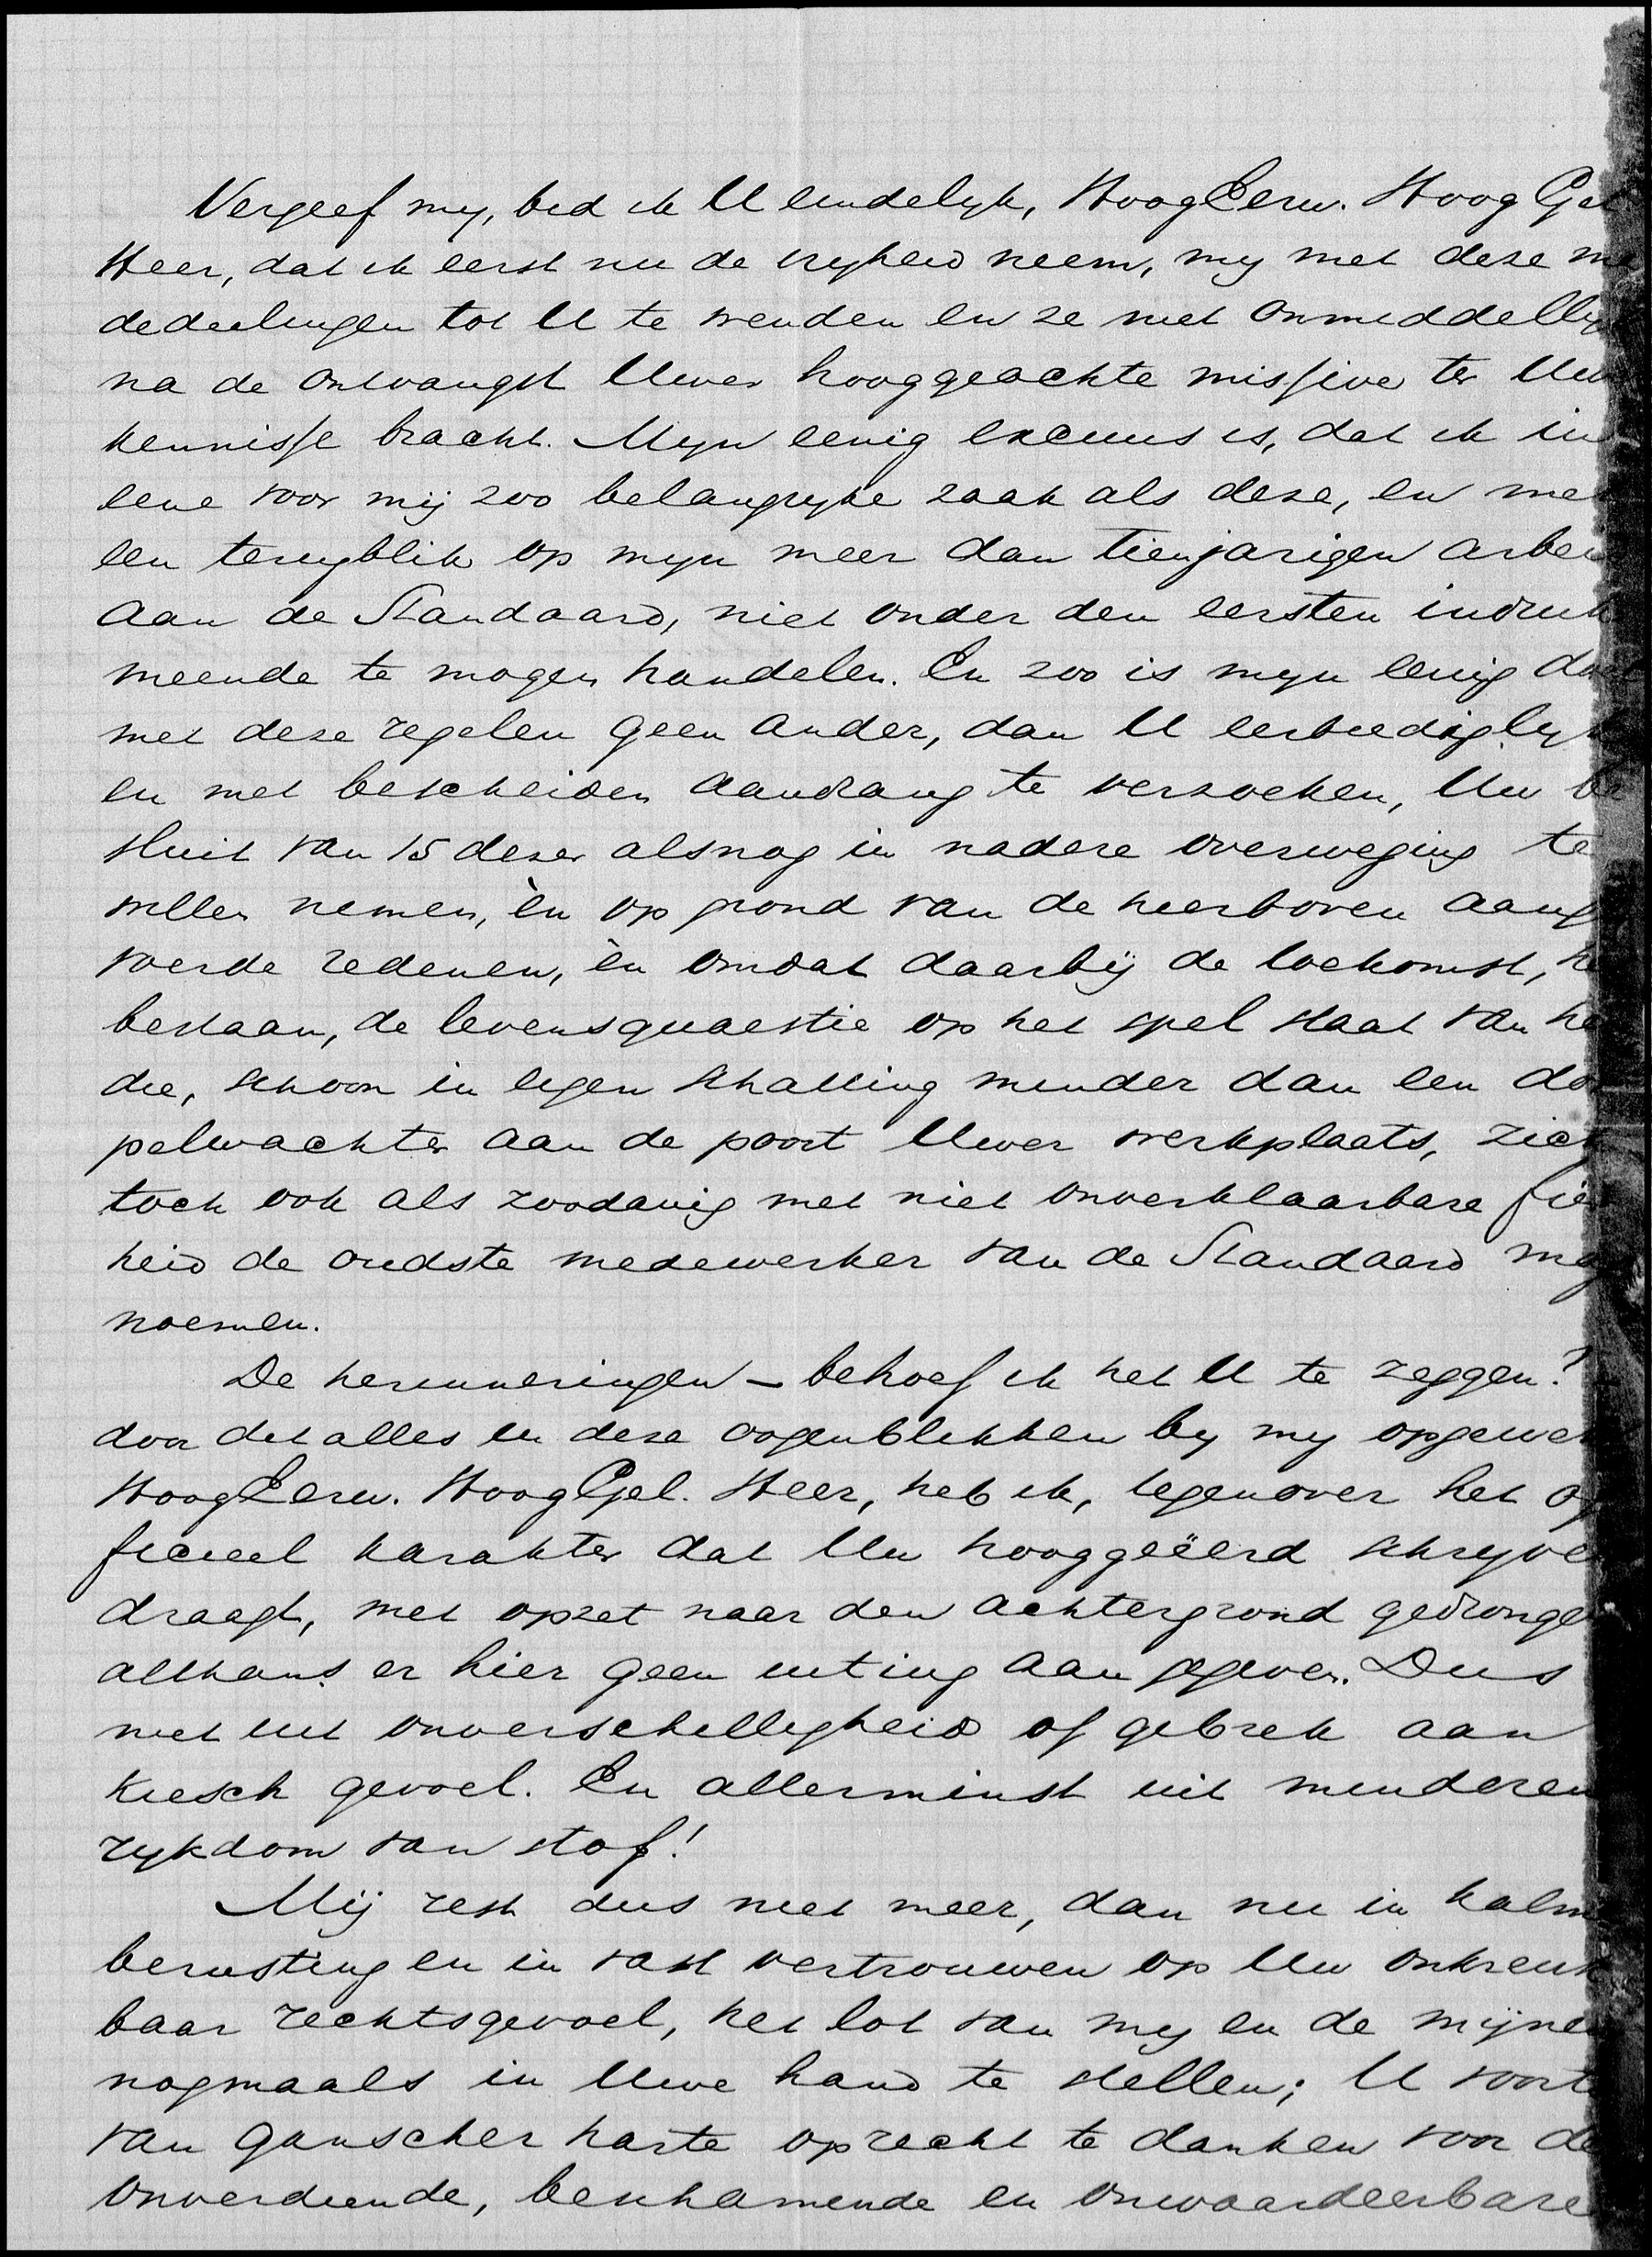 Vergeef my, bid ik U eindelyk, HoogEerw. Hoog Gel
Heer, dat ik eerst nu de vryheid neem, my met deze me
dedeelingen tot U te wenden en ze niet onmiddellyk
na de ontvangst Uwer hooggeachte missive ter Uwe
kennisse bracht. Myn eenig excuus is, dat ik in
eene voor mij zoo belangryke zaak als deze, en met
een terugblik op myn meer dan tienjarigen arbei
aan de Standaard, niet onder den eersten indruk
meende te mogen handelen. En zoo is myn eenig doel
met deze regelen geen ander, dan U eerbiediglyk
en met bescheiden aandrang te verzoeken, Uw be
sluit van 15 dezer alsnog in nadere overweging te
willen nemen, èn op grond van de hierboven aange
voerde redenen, èn omdat daarbij de toekomst, he
bestaan, de levensquaestie op het spel staat van he
die, schoon in eigen schatting minder dan een do
pelwachter aan de poort Uwer werkplaats, zich
toch ook als zoodanig met niet onverklaarbare fier
heid de oudste medewerker van de Standaard mag
noemen.
De herinneringen – behoef ik het U te zeggen?
door dit alles in deze oogenblikken by my opgewek
HoogEerw. HoogGel. Heer, heb ik, tegenover het of
ficieel karakter dat Uw hooggeëerd schryve
draagt, met opzet naar den achtergrond gedronge
althans er hier geen uiting aan gegeven. Dus
niet uit onverschilligheid of gebrek aan
kiesch gevoel. En allerminst uit minderen
rykdom van stof!
Mij rest dus niet meer, dan nu in kalme
berusting en in vast vertrouwen op Uw onkreuk
baar rechtsgevoel, het lot van my en de mijnen
nogmaals in Uwe hand te stellen; U voort
van ganscher harte oprecht te danken voor de
onverdiende, beschamende en onwaardeerbare